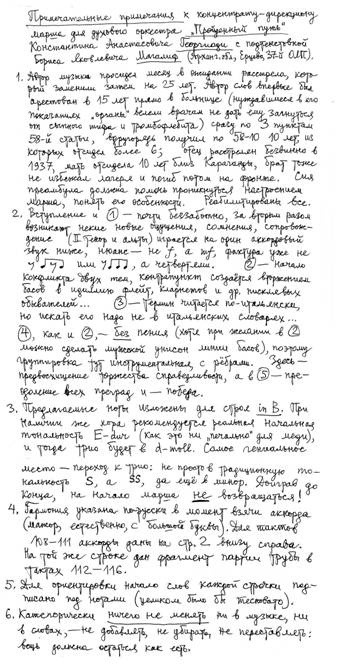 Примечательные примечания к концентрату-дирекциону
марша для духового оркестра „Пройденный путь"
Константина Анастасовича Георгиади с подтекстовкой
Бориса Яковлевича Магалиф (Арханг. обл., Ерцево, 37-й ОЛП).
1. Автор музыки просидел месяц в ожидании расстрела, кото-
рый заменили затем на 25 лет. Автор слов впервые был
арестован в 15 лет прямо в больнице (нуждавшиеся в его
показаниях „органы" велели врачам не дать ему загнуться
от сыпного тифа и тромбофлебита) сразу по 3 пунктам
58-й статьи, вторично получил по 58-10 10 лет, из
которых отсидел более 6; отец расстрелян безвинно в
1937, мать отсидела 10 лет близ Караганды, брат тоже
не избежал лагеря и погиб потом на фронте. Сия
преамбула должна помочь проникнуться настроением
марша, понять его особенности. Реабилитированы все.
2. Вступление и ① – почти беззаботно, за вторым разом
возникают некие новые ощущения, сомнения, сопровож-
дение (II тенор и альты) играется на один аккордовый
звук ниже, нюанс – не f, а mf, фактура уже не
а четвертями. ② – начало
конфликта двух тем, контрапункт создаётся вторжением
басов в идиллию флейт, кларнетов и др. писклявых
обывателей... ③ – термин читается по-итальянски,
но искать его надо не в итальянских словарях...
④, как и ②, – без пения (хотя при желании в ②
можно сделать мужской унисон линии басов), поэтому
группировка тут инструментальная, с рёбрами. Здесь –
предвосхищение торжества справедливости, а в ⑤ – пре-
одоление всех преград и – победа.
3. Предлагаемые ноты изложены для строя in B. При
наличии же хора рекомендуется реальная начальная
тональность E-dur (как это ни „печально" для меди),
и тогда трио будет в d-moll. Самое гениальное
место – переход к трио: не просто в традиционную то-
нальность S, а SS, да ещё в минор. Доиграв до
конца, на начало марша не возвращаться!
4. Гармония указана по-русски в момент взятия аккорда
(мажор, естественно, с большой буквы). Для тактов
108-111 аккорды даны на стр. 2 внизу справа.
На той же строке дан фрагмент партии трубы в
тактах 112-116.
5. Для ориентировки начало слов каждой строчки под-
писано под нотами (целиком было бы тесновато).
6. Категорически ничего не менять ни в музыке, ни
в словах, – не добавлять, не убирать, не переставлять:
вещь должна остаться как есть.